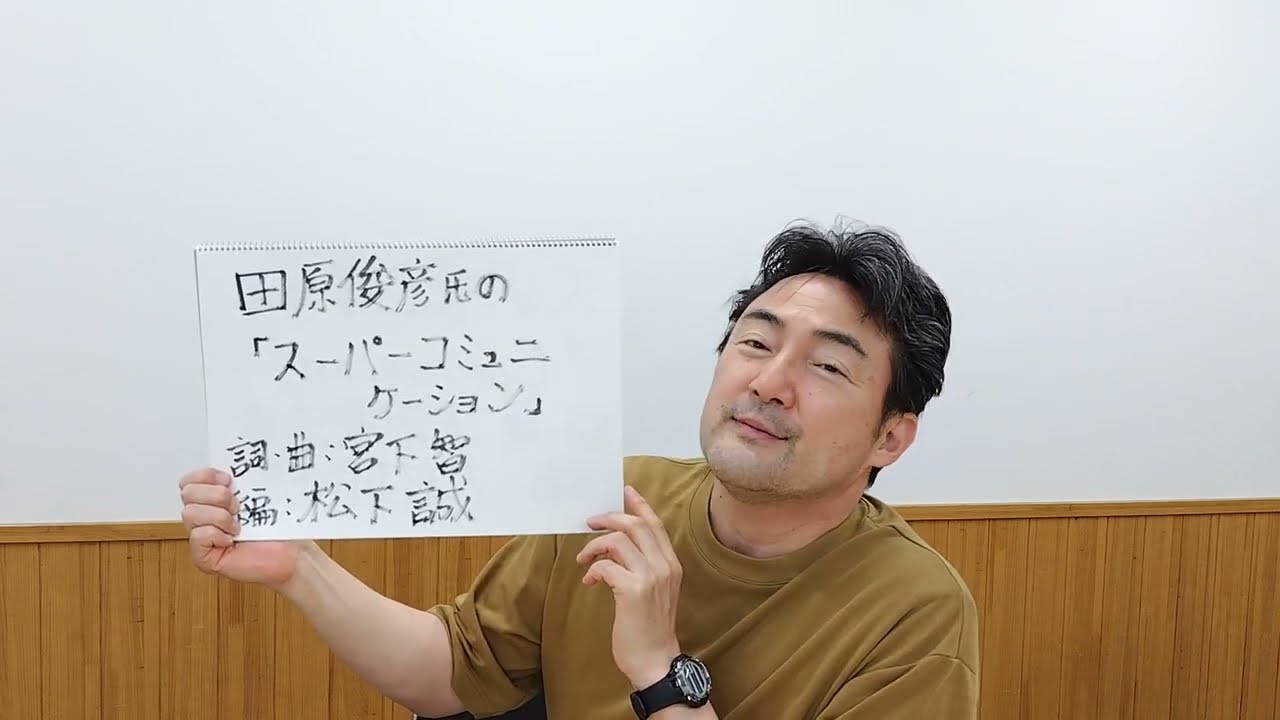 田原俊彦氏の
「スーパーコミュニ
ケーション」
詞・曲:宮下智
編:松下誠